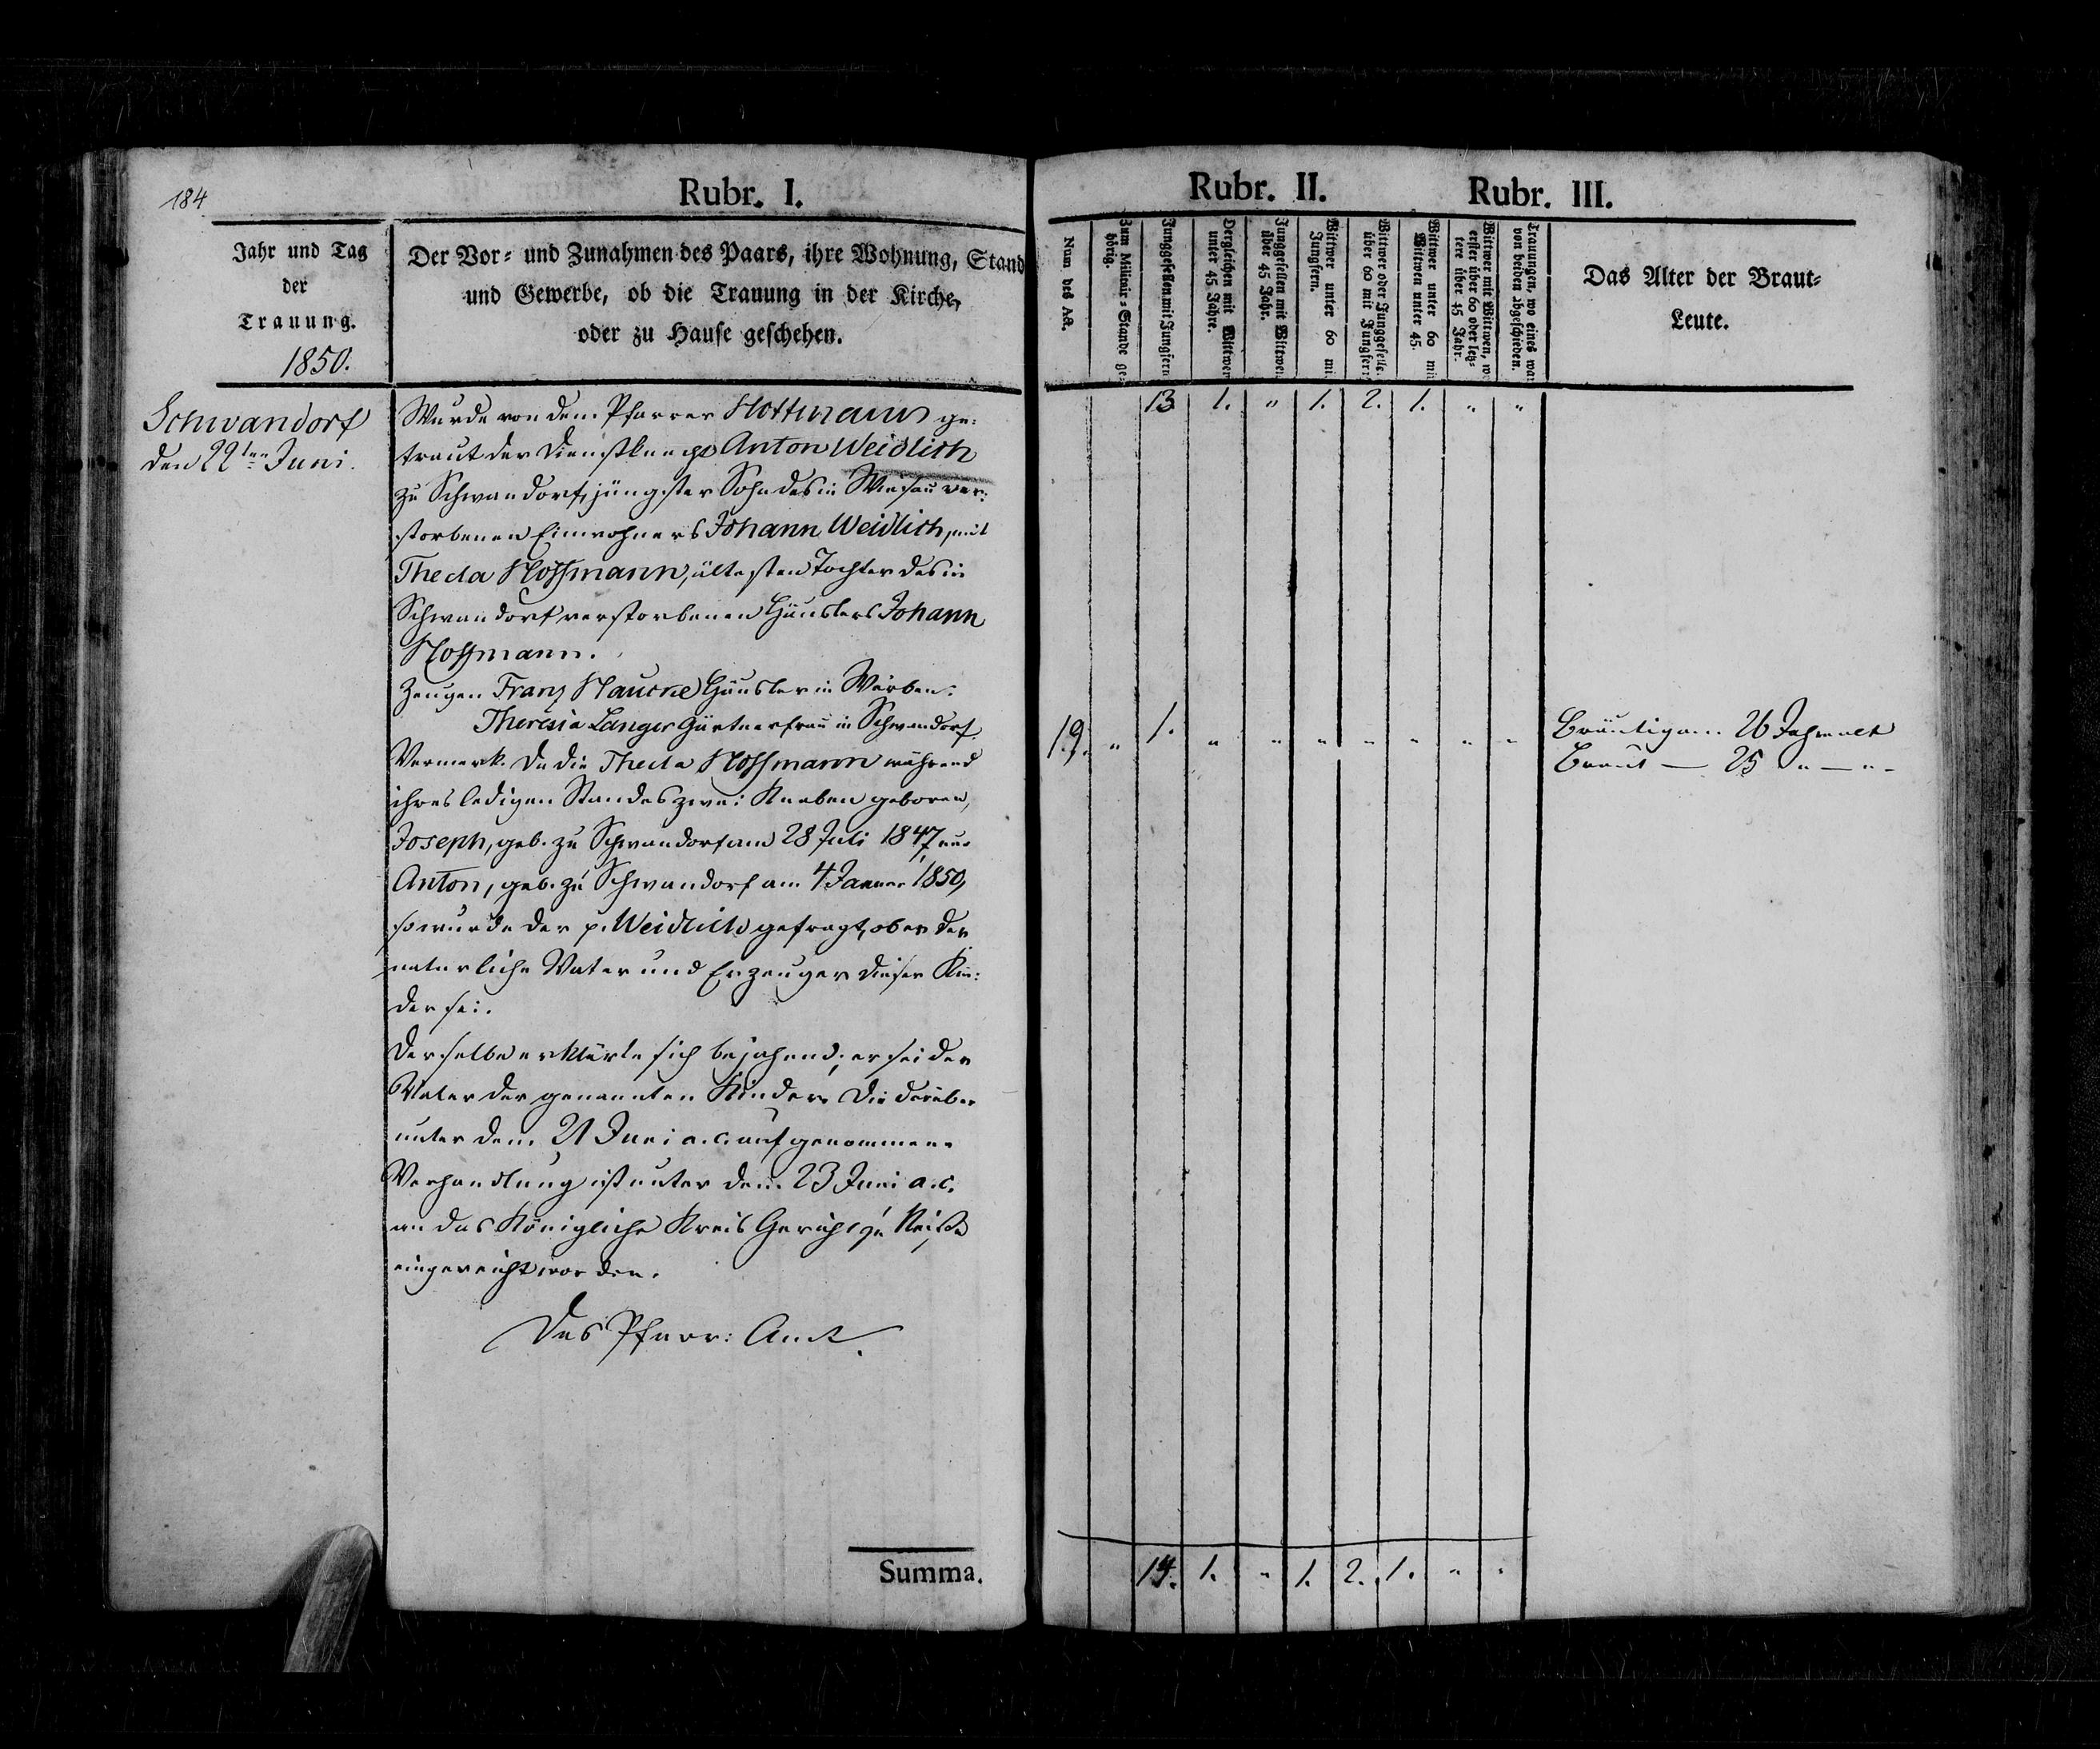 184
Rubr. I.
Jahr und Tag
der
Trauung.
1850.
Der Vor- und Zunahmen des Paars, ihre Wohnung, Stand
und Gewerbe, ob die Trauung in der Kirche,
oder zu Hause geschehen.
Schwandorf
den 22ten Juni.
Wurde von dem Pfarrer Hoffmann ge-
traut der Dienstknecht Anton Weidlich
zu Schwandorf, jüngster Sohn des in ver-
storbenen Einwohners Johann Weidlich, mit
Thecla Hoffmann, ältesten Tochter des in
Schwandorf verstorbenen Häuslers Johann
Hoffmann.
Zeugen Franz Haucke Häusler in
Theresia Langer Gärtnerfrau in Schwandorf.
Vermerk. Da die Thecla Hoffmann während
ihres ledigen Standes zwei Knaben geboren,
Joseph, geb. zu Schwandorf am 28 Juli 1847 und
Anton, geb. zu Schwandorf am 4 Januar 1850,
so wurde der p. Weidlich gefragt, ob er der
natürliche Vater und Erzeuger dieser Kin-
der sei.
Derselbe erklärte sich bejahend; er sei der
Vater der genannten Kinder. Die darüber
unter dem 21 Juni a. c. aufgenommene
Verhandlung ist unter dem 23 Juni a. c.
an das Königliche Kreis Gericht zu Neisse
eingereicht worden.
Das Pfarr: Amt.
Summa.
Rubr. II.
Rubr. III.
Num des Act.
Zum Militair-Stande ge-
hörig.
Junggesellen mit Jungfern
Dergleichen mit Wittwen
unter 45 Jahre.
Junggesellen mit Wittwen
über 45 Jahr.
Wittwer unter 60 mi
Jungfern.
Wittwer oder Junggeselle.
über 60 mit Jungfer
Wittwer unter 60 mi
Wittwen unter 45.
Wittwer mit Wittwen, w
erster über 60 oder letz-
tere über 45 Jahr.
Trauungen, wo eines war
von beiden abgeschieden.
Das Alter der Braut-
Leute.
13 1. " 1. 2. 1. " "
19. " 1. " " " " " " "
Bräutigam 26 Jahr alt
Braut — 25 " — " -
14. 1. " 1. 2. 1. " "